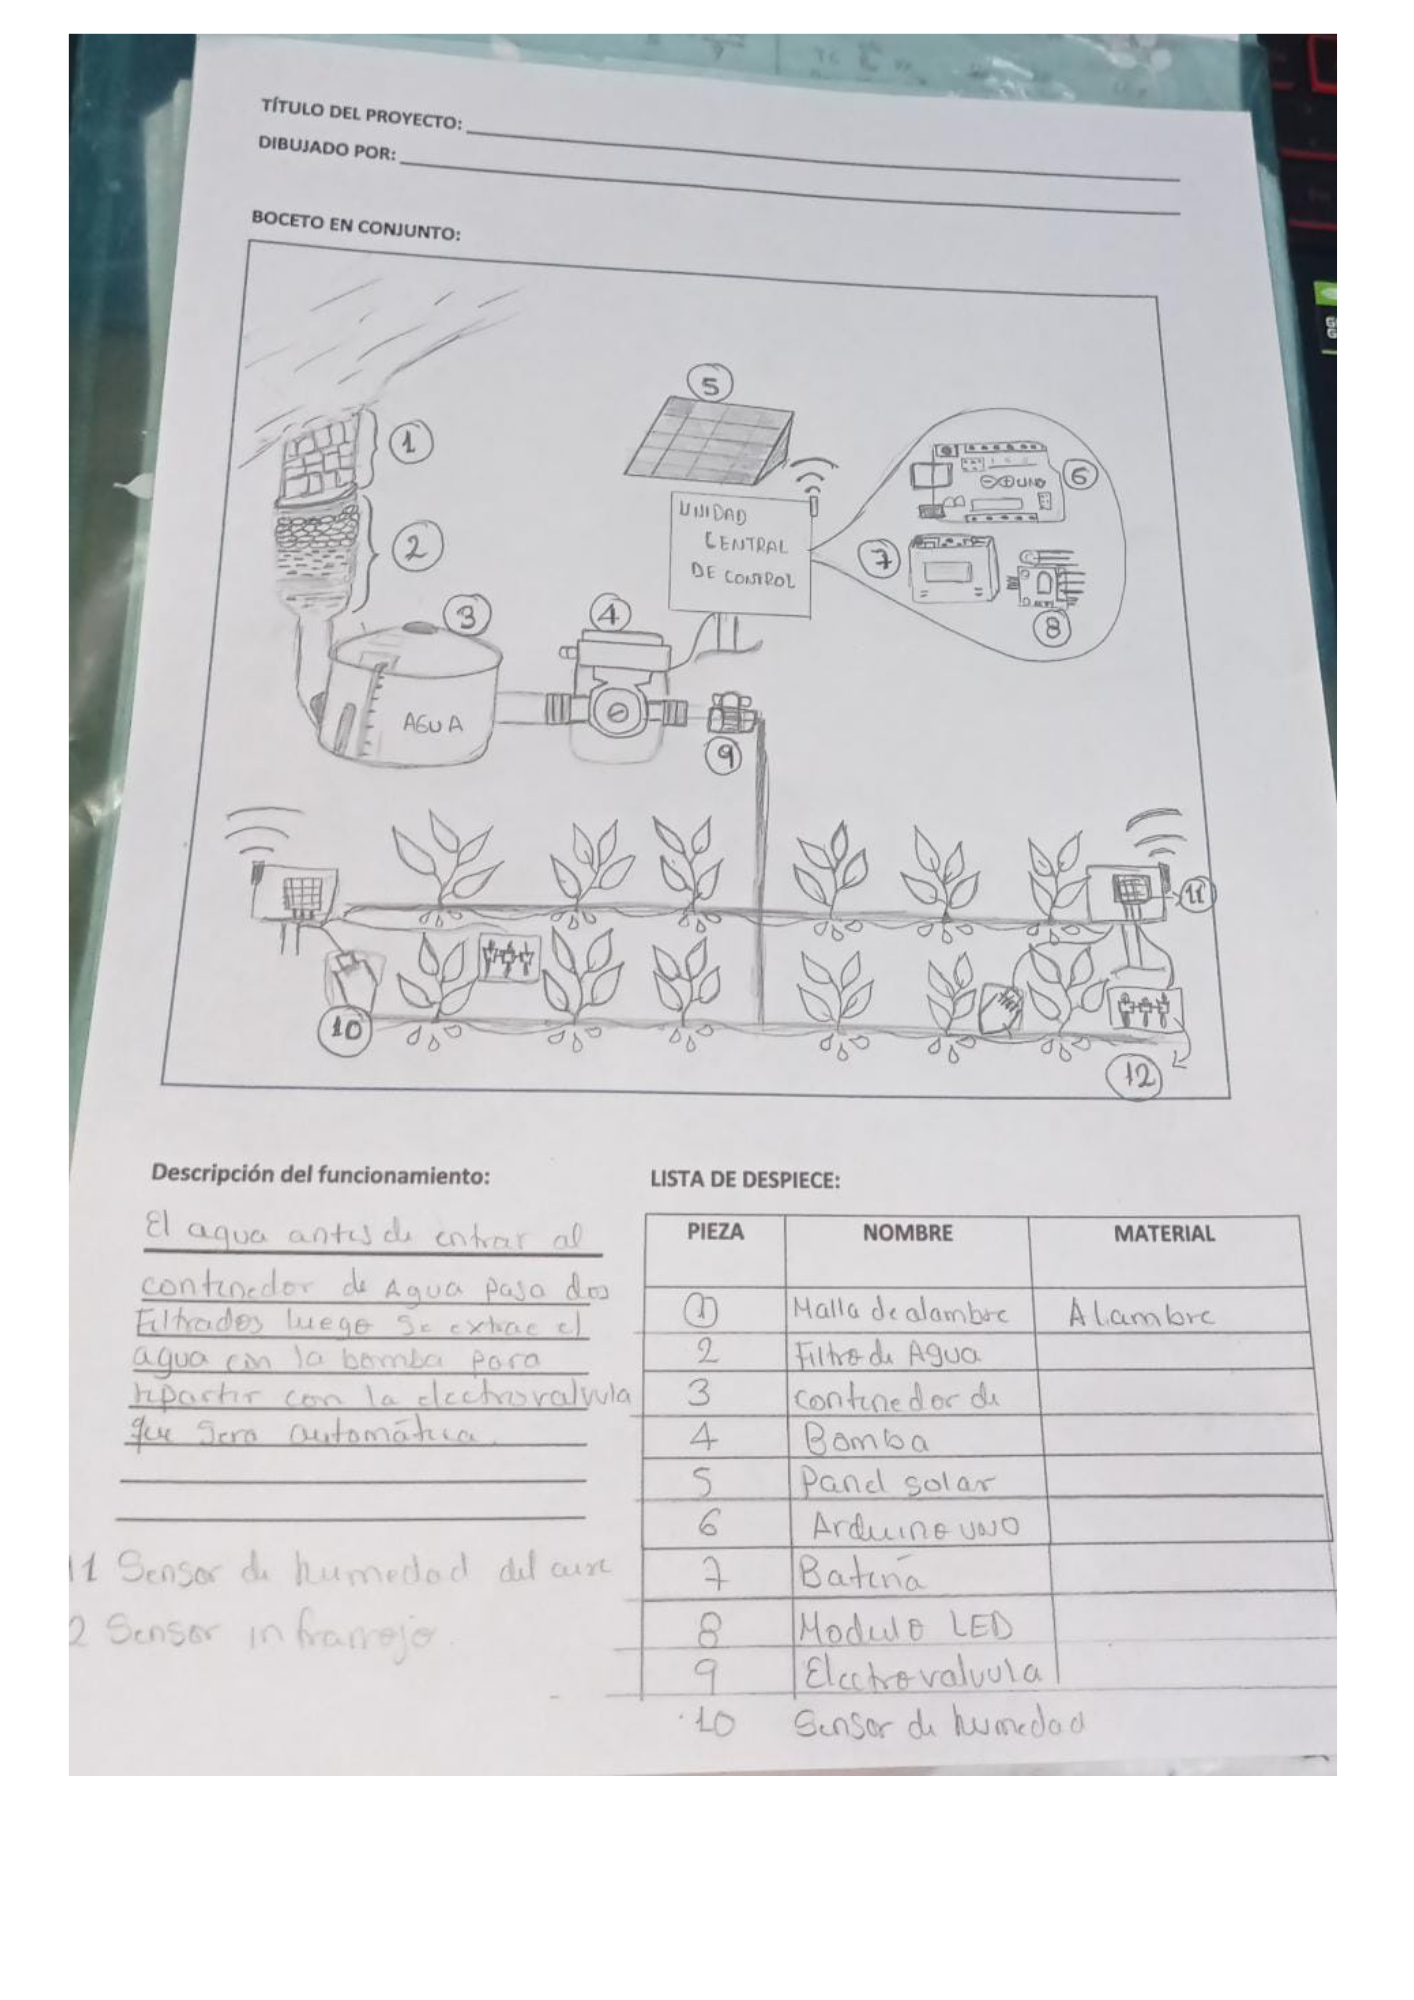 TÍTULO DEL PROYECTO:
DIBUJADO POR:
BOCETO EN CONJUNTO:
1
2
3
AGUA
4
5
UNIDAD
CENTRAL
DE CONTROL
UNO
6
7
8
9
10
11
12
Descripción del funcionamiento:
El agua antes de entrar al
contenedor de Agua pasa dos
Filtrados luego se extrae el
agua con la bomba para
repartir con la electrovalvula
que sera automática.
11 Sensor de humedad del aire
2 Sensor infrarrojo.
LISTA DE DESPIECE:
PIEZA NOMBRE MATERIAL
1 Malla de alambre Alambre
2 Filtro de Agua
3 contenedor de
4 Bomba
5 Panel solar
6 Arduino UNO
7 Batería
8 Modulo LED
9 Electrovalvula
10 Sensor de humedad